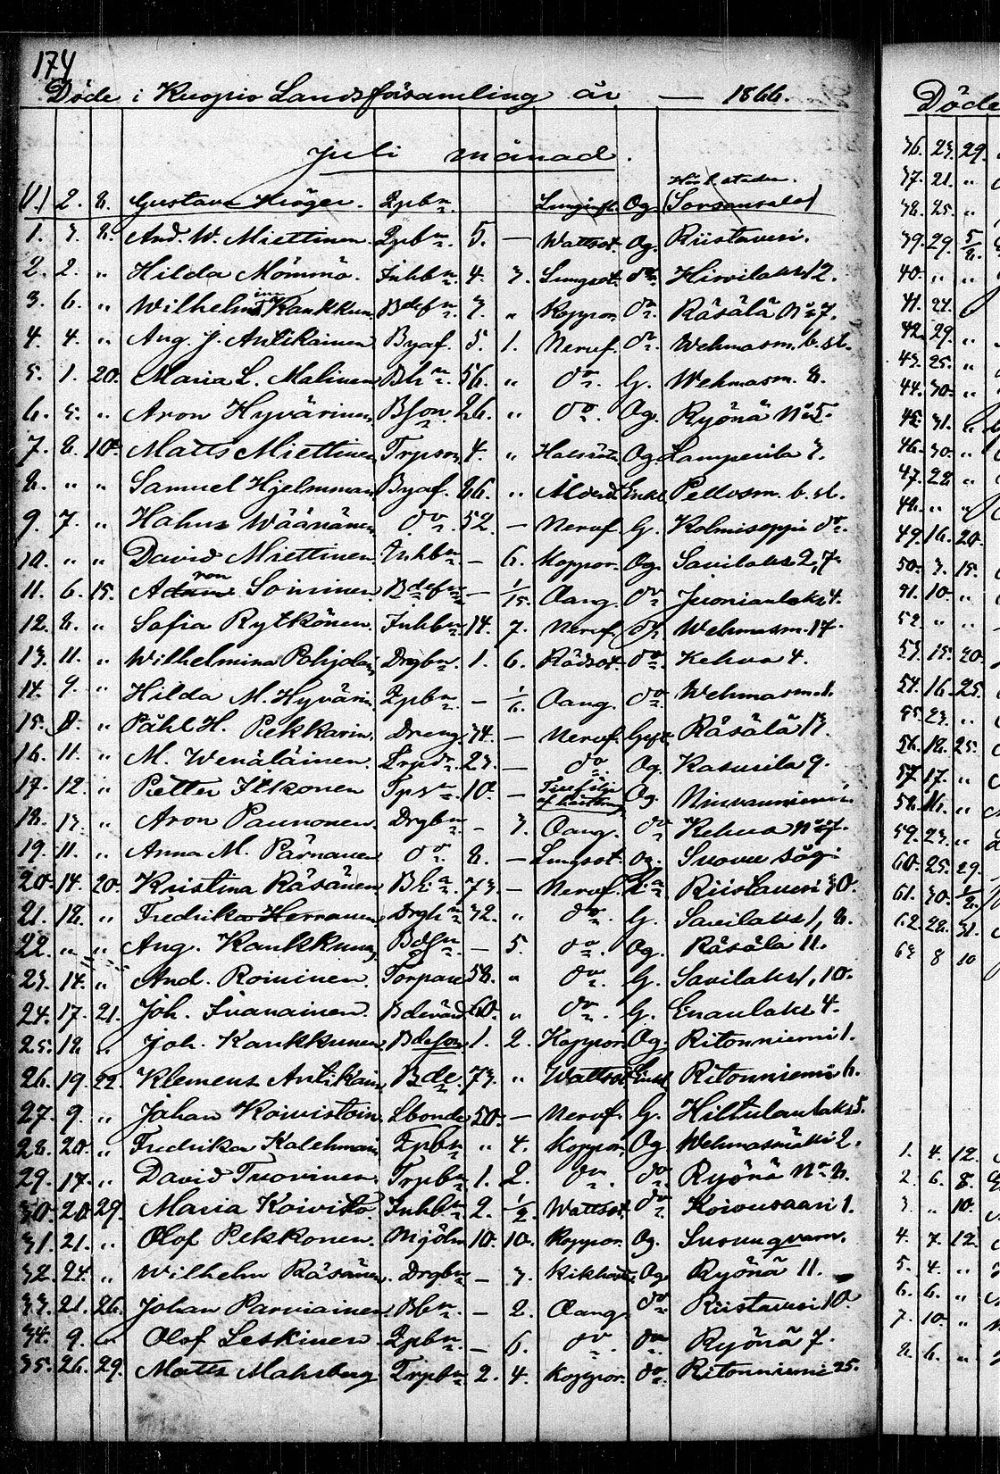 174
Döde i Kuopio Landsförsamling år — 1866.
Juli månad.
(1.) 2. 8. Gustava Kröger. Lungsot. Og (Sorsansalo)
1. 3. 8. And. W. Miettinen 5. — Wattsot. Og. Riistavesi.
2. 2. " Hilda Mömmö. Inhbn. 4. 3. Lungsot. do. Hirvilaks 12.
3. 6. " Wilhelmina Kaukkun. 3. " Koppor. do. Räsälä No 7.
4. 4. " Aug. J. Antikainen Byaf. 5. 1. Nervf. do. Wehmasm. b. st.
5. 1. 20. Maria L. Malinen 56. " do. G. Wehmasm. 8.
6. 5. " Aron Hyvärinen Bson. 26. " do. Og. Ryönä No 5.
7. 8. 10. Matts Miettinen Trpson. 4. " Og. Lamperila 3.
8. " " Samuel Hjelmman Byaf. 86. " Ålderd. Enkl. Pellosm. b. st.
9. 7. " Wäänänen do. 52 — Nervf. G. Kolmisoppi do.
10. " " David Miettinen Inhbn — 6. Koppor. Og. Savilaks 2, 7.
11. 6. 15. Aron Soininen — 1/15. Oang. do. Juonionlaks 4.
12. 8. " Sofia Rytkönen Inhbn 14. 7. Nervf. do. Wehmasm. 14.
13. 11. " Wilhelmina Pohjolain Drgbn. 1. 6. Rödsot. do. Kehvo 4.
14. 9. " Hilda M. Hyvärin — 1/6. Oang. do. Wehmasm. 1.
15. 8. " Påhl H. Pekkarin. Dreng. 74. — Nervf. Gift. Räsälä 13.
16. 11. " M. Wenäläinen. 23. — do Og. Kasurila 9.
17. 12. " Petter Itkonen 10. — Og. Niuvanniemi
18. 13. " Aron Paunonen. Drgbn — 3. Oang. do Kehvo No 7.
19. 11. " Anna M. Pärnanen do. 8. — Lungsot. Og. Suovu såg
20. 14. 20. Kristina Räsänen 73. — Nervf. Riistavesi 30.
21. 12. " Fredrika Herranen 32. " do. G. Savilaks 1, 8.
22. " " Aug. Kaukkunen — 5. do. Og Räsälä 11.
23. 14. " And. Roivinen. Torpare 58. " do. G. Savilaks 1, 10.
24. 17. 21. Joh. Iivanainen. 60. " do. G. Enanlaks 4.
25. 12. " Joh. Kaukkunen Bdeson 1. 2. Koppor. Og. Ritoniemi 1.
26. 19. 22. Klemens Antikain Bde. 73. " Wattsot Enkl Ritonniemi 6.
27. 9. " Johan Koivistoin Lbonde 50. — Nervf. G. Hiltulanlaks 5.
28. 20. " Fredrika Kolehmain " 4. Koppor. Og Wehmasmäki 2.
29. 17. " David Tuovinen Trpbn 1. 2. do. do Ryönä No 8.
30. 20. 29. Maria Koivisto. Inhbn 2. 1/2. Wattsot. do Koivusaari 1.
31. 21. " Olof Pekkonen. Mjöln 10. 10. Koppor. Og. Suovuqvarn.
32. 24. " Wilhelm Räsänen. Drgbn — 3. Kikhosta Og. Ryönä 11.
33. 21. 26. Johan Parviainen — 2. Oang. do Riistavesi 10.
34. 9. " Olof Leskinen — 6. do. do Ryönä 7.
35. 26. 29. Matts Mahsberg Trpbn 2. 4. Koppor. do. Ritonniemi 25.
Döde
36. 23. 29.
37. 21. "
38. 25. "
39. 29. 5/8.
40. " "
41. 24.
42. 29. "
43. 25. "
44. 30. "
45. 31. "
46. 30. "
47. 28. "
48. " "
49. 16. 20.
50. 3. 15.
51. 10. "
52. " "
53. 15. 20.
54. 16. 25.
55. 23. "
56. 18. 25.
57. 17. "
58. 16. "
59. 23. "
60. 25. 29.
61. 30. 1/8.
62. 28. 31.
63 8 10
1. 4. 12.
2. 6. 8.
3. " 10.
4. 7. 12
5. 4. "
6. 6. "
7. 10. "
8. 6. "